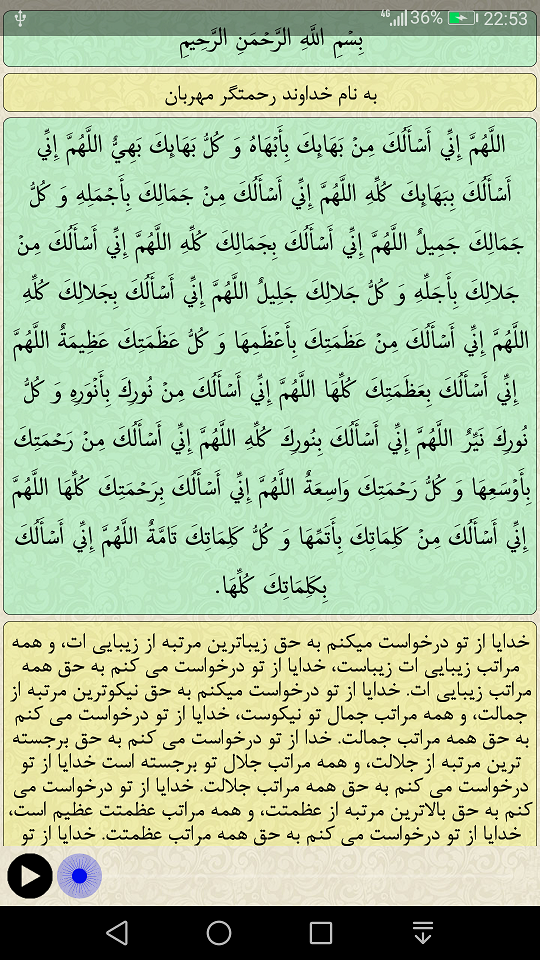 4G 36% 22:53
بِسْمِ اللَّهِ الرَّحْمَنِ الرَّحِيمِ
به نام خداوند رحمتگر مهربان
اللَّهُمَّ إِنِّي أَسْأَلُكَ مِنْ بَهَائِكَ بِأَبْهَاهُ وَ كُلُّ بَهَائِكَ بَهِيٌّ اللَّهُمَّ إِنِّي
أَسْأَلُكَ بِبَهَائِكَ كُلِّهِ اللَّهُمَّ إِنِّي أَسْأَلُكَ مِنْ جَمَالِكَ بِأَجْمَلِهِ وَ كُلُّ
جَمَالِكَ جَمِيلٌ اللَّهُمَّ إِنِّي أَسْأَلُكَ بِجَمَالِكَ كُلِّهِ اللَّهُمَّ إِنِّي أَسْأَلُكَ مِنْ
جَلالِكَ بِأَجَلِّهِ وَ كُلُّ جَلالِكَ جَلِيلٌ اللَّهُمَّ إِنِّي أَسْأَلُكَ بِجَلالِكَ كُلِّهِ
اللَّهُمَّ إِنِّي أَسْأَلُكَ مِنْ عَظَمَتِكَ بِأَعْظَمِهَا وَ كُلُّ عَظَمَتِكَ عَظِيمَةٌ اللَّهُمَّ
إِنِّي أَسْأَلُكَ بِعَظَمَتِكَ كُلِّهَا اللَّهُمَّ إِنِّي أَسْأَلُكَ مِنْ نُورِكَ بِأَنْوَرِهِ وَ كُلُّ
نُورِكَ نَيِّرٌ اللَّهُمَّ إِنِّي أَسْأَلُكَ بِنُورِكَ كُلِّهِ اللَّهُمَّ إِنِّي أَسْأَلُكَ مِنْ رَحْمَتِكَ
بِأَوْسَعِهَا وَ كُلُّ رَحْمَتِكَ وَاسِعَةٌ اللَّهُمَّ إِنِّي أَسْأَلُكَ بِرَحْمَتِكَ كُلِّهَا اللَّهُمَّ
إِنِّي أَسْأَلُكَ مِنْ كَلِمَاتِكَ بِأَتَمِّهَا وَ كُلُّ كَلِمَاتِكَ تَامَّةٌ اللَّهُمَّ إِنِّي أَسْأَلُكَ
بِكَلِمَاتِكَ كُلِّهَا.
خدایا از تو درخواست میکنم به حق زیباترین مرتبه از زیبایی ات، و همه
مراتب زیبایی ات زیباست، خدایا از تو درخواست می کنم به حق همه
مراتب زیبایی ات. خدایا از تو درخواست میکنم به حق نیکوترین مرتبه از
جمالت، و همه مراتب جمال تو نیکوست، خدایا از تو درخواست می کنم
به حق همه مراتب جمالت. خدا از تو درخواست می کنم به حق برجسته
ترین مرتبه از جلالت، و همه مراتب جلال تو برجسته است خدایا از تو
درخواست می کنم به حق همه مراتب جلالت. خدایا از تو درخواست می
کنم به حق بالاترین مرتبه از عظمتت، و همه مراتب عظمتت عظیم است،
خدایا از تو درخواست می کنم به حق همه مراتب عظمتت. خدایا از تو